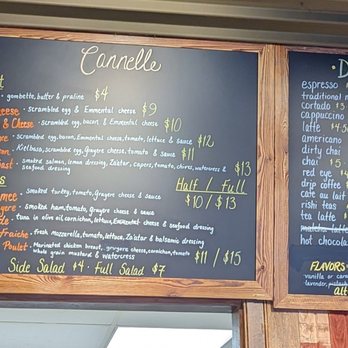 Cannelle
gambette, butter & praline $4
eese - scrambled egg & Emmental cheese $9
& Cheese - scrambled egg, bacon, & Emmental cheese $10
scrambled egg, bacon, Emmental cheese, tomato, lettuce & sauce $12
Kielbasa, scrambled egg, Gruyere cheese, tomato, & sauce $11
ast - smoked salmon, lemon dressing, Za'atar, capers, tomato, chives, watercress & $13
seafood dressing
Half / Full
smoked turkey, tomato, Gruyere cheese & sauce $10 / $13
yere - smoked ham, tomato, gruyere cheese & sauce
tuna in olive oil, cornichon, lettuce, Emmental cheese & seafood dressing
Fraiche - fresh mozzarella, tomato, lettuce, Za'atar & balsamic dressing
Poulet - Marinated chicken breast, gruyere cheese, cornichon, tomato $11 / $15
whole grain mustard & watercress
Side Salad $4 - Full Salad $7
D
espresso
traditional
cortado $3
cappuccino
latte
americano
dirty chai
chai $5
red eye
drip coffee
cafe au lait
rishi teas
tea latte
matcha latte
hot chocola
FLAVORS
vanilla or
lavender,
alt